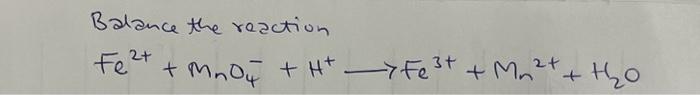 Balance the reaction
Fe²⁺ + MnO₄⁻ + H⁺ ⟶ Fe³⁺ + Mn²⁺ + H₂O